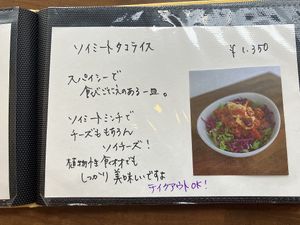 ソイミートタコライス
¥1,350
スパイシーで
食べごたえのある一皿。
ソイミートミンチで
チーズももちろん
ソイチーズ!
植物性食材でも
しっかり美味しいですよ
テイクアウトOK!